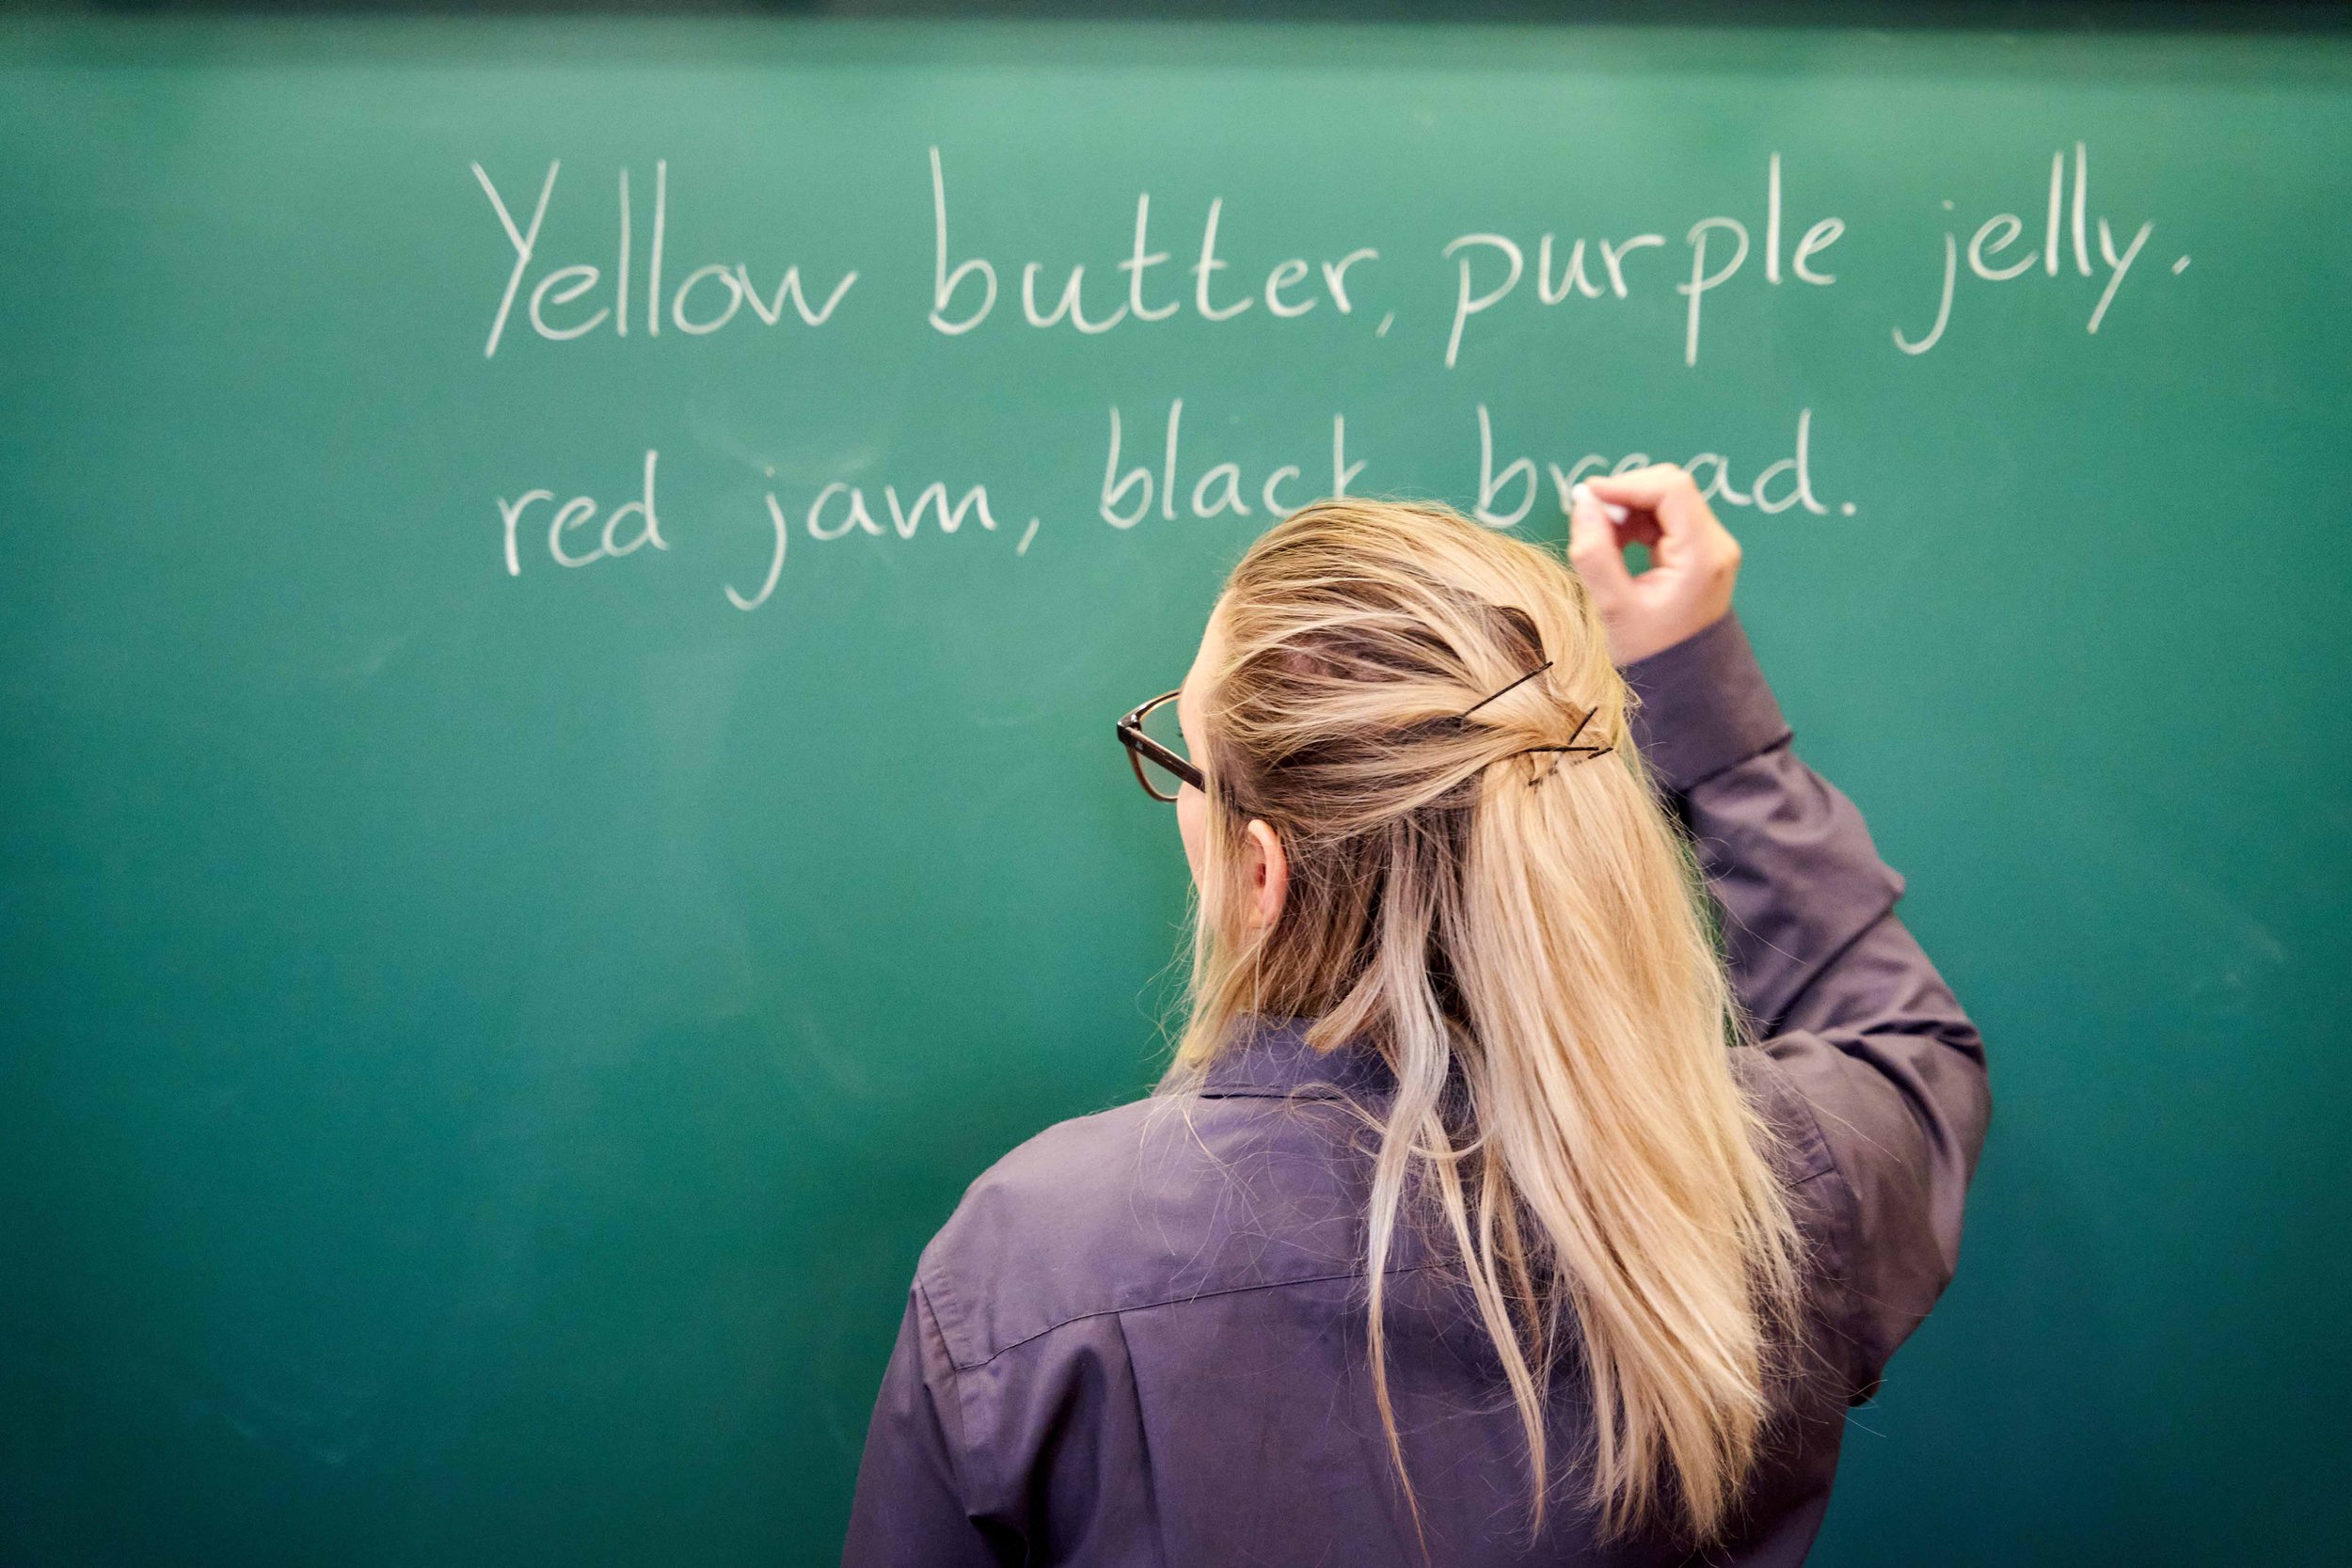 Yellow butter, purple jelly.
red jam, black bread.